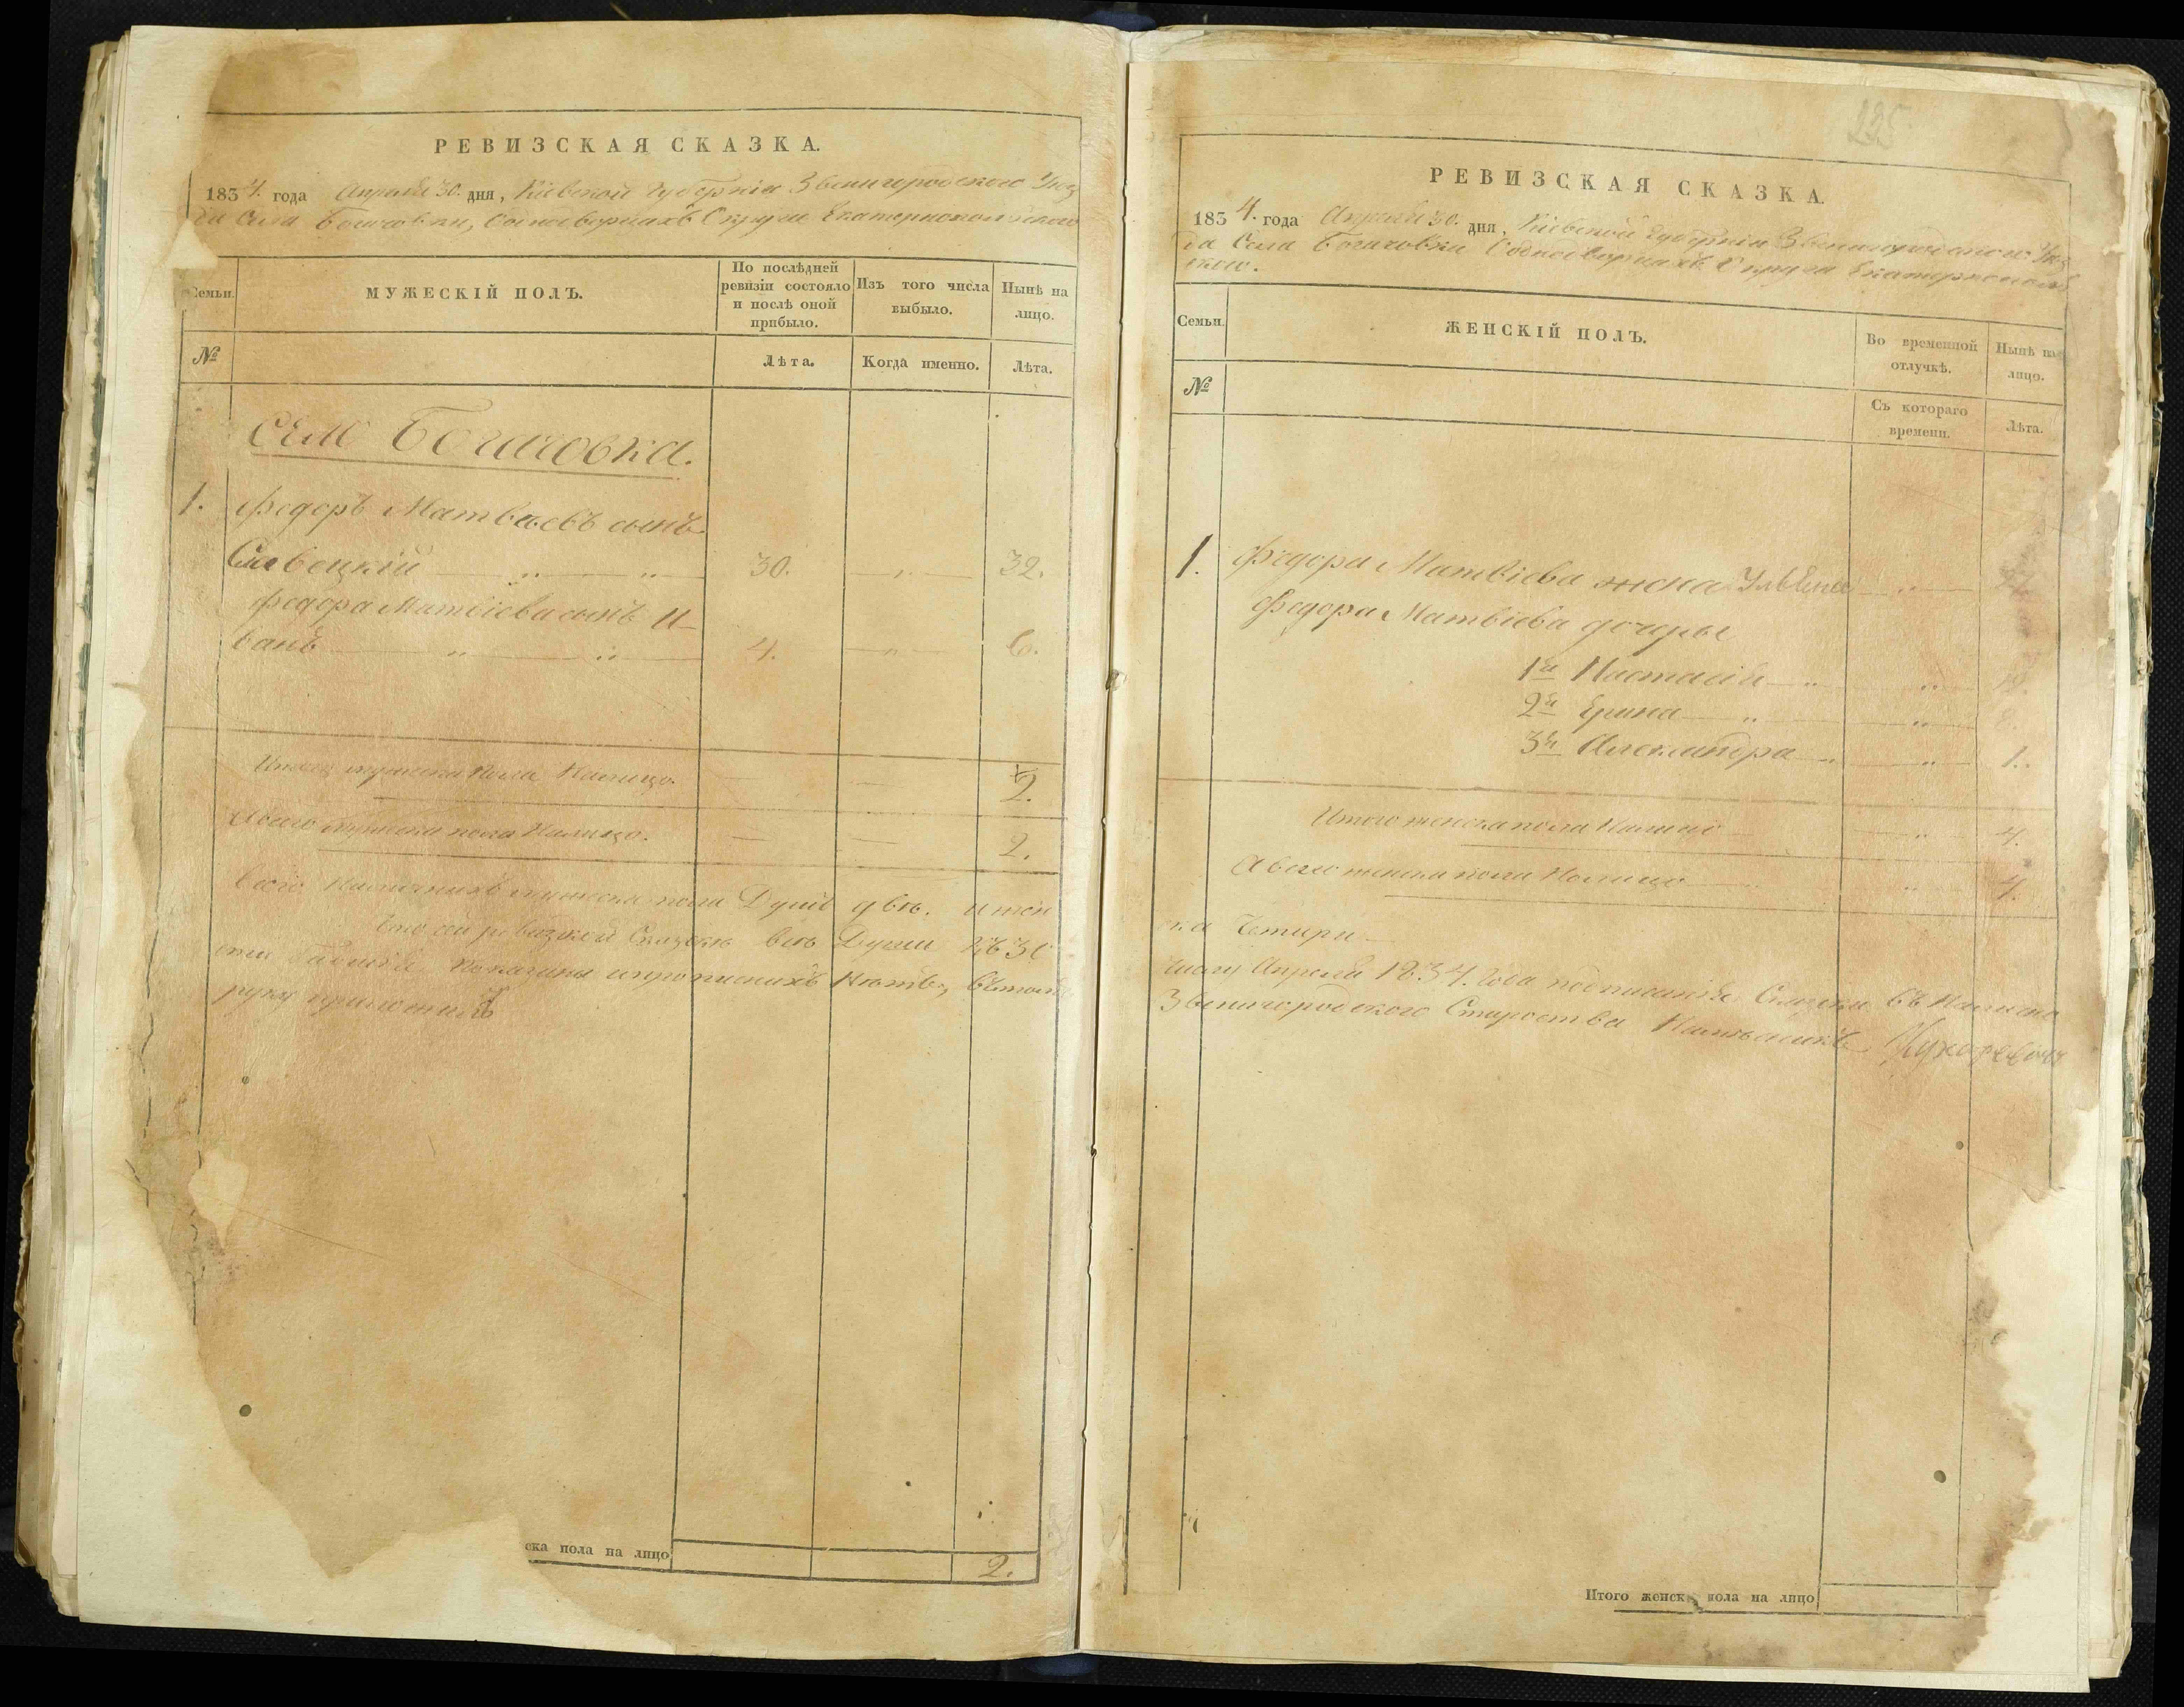 РЕВИЗСКАЯ СКАЗКА.
1834. года Апреля 30. дня, Кіевской губерніи Звенигородского Уез
да Села Богачовки, Округи Екатеринопольского
Семьи.
МУЖЕСКІЙ ПОЛЪ.
По послѣдней ревизіи состояло и послѣ оной прибыло.
Изъ того числа выбыло.
Нынѣ на лицо.
№
Лѣта.
Когда именно.
Лѣта.
Село Богачовка.
1. Федоръ Матвѣевъ сынъ
30. 32.
Федора Матвіева сынъ И-
ванъ 4. 6.
Итого мужеска пола налицо. 2.
А всего мужеска пола налицо. 2.
Всего наличнихъ мужеска пола Душъ двѣ. и жен
всѣ Души къ 30
показаны и прописнихъ нѣтъ, въ томъ
руку приложилъ
ска пола на лицо 2.
225
РЕВИЗСКАЯ СКАЗКА.
1834. года Апреля 30. дня, Кіевской губерніи Звенигородского Уез
да Села Богачовки Округи Екатеринополь
ского.
Семьи.
ЖЕНСКІЙ ПОЛЪ.
Во временной отлучкѣ.
Нынѣ на лицо.
№
Съ котораго времени.
Лѣта.
1. Федора Матвіева жена
Федора Матвіева дочеры
1я Настасія
2я Ерина
3я Александра 1.
Итого женска пола налицо 4.
А всего женска пола налицо 4.
ка Четыри
числу Апреля 1834. года
Звенигородского Староства
Итого женск пола на лицо